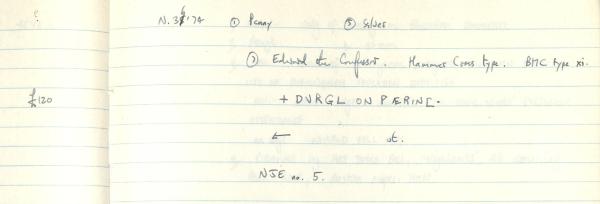 ?
N. 36'74 ① Penny ② Silver
③ Edward the Confessor. Hammer Cross type. BMC type xi.
£120
+ DVRGL ON PÆRINC.
← wt.
NJE no. 5.